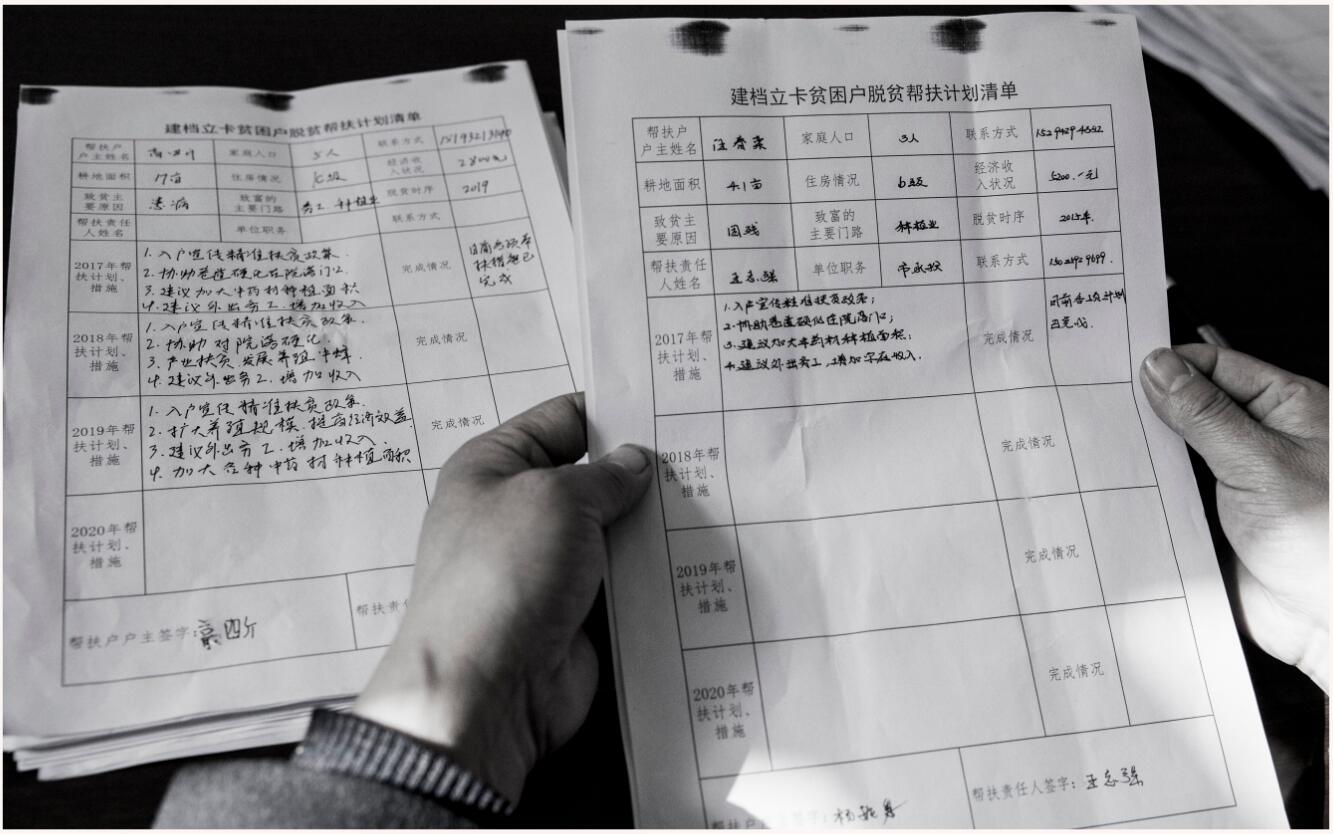 建档立卡贫困户脱贫帮扶计划清单
帮扶户户主姓名 家庭人口 5人 联系方式
耕地面积 17亩 住房情况 C级 经济收入状况 2800元
致贫主要原因 患病 致富的主要门路 务工、种植业 脱贫时序 2019
帮扶责任人姓名 单位职务 联系方式
2017年帮扶计划、措施
1. 入户宣传精准扶贫政策.
2. 协助巷道硬化庄院落门口
3. 建议加大中药材种植面积
4. 建议外出务工.增加收入
完成情况
目前各项帮
扶措施已
完成
2018年帮扶计划、措施
1. 入户宣传精准扶贫政策.
2. 协助对院落硬化.
3. 产业扶贫.发展养殖
4. 建议外出务工.增加收入
完成情况
2019年帮扶计划、措施
1. 入户宣传精准扶贫政策.
2. 扩大养殖规模.提高经济效益
3. 建议外出务工.增加收入.
4. 加大各种中药材种植面积
完成情况
2020年帮扶计划、措施
帮扶户户主签字:
帮扶责
建档立卡贫困户脱贫帮扶计划清单
帮扶户户主姓名 家庭人口 3人 联系方式
耕地面积 4.1亩 住房情况 b级 经济收入状况 5200.一元
致贫主要原因 因残 致富的主要门路 种植业 脱贫时序 2015年.
帮扶责任人姓名 王志强 单位职务 联系方式
2017年帮扶计划、措施
1.入户宣传精准扶贫政策;
2.协助巷道硬化庄院落门口;
3.建议加大中药材种植面积.
4.建议外出务工,增加家庭收入.
完成情况
目前各项计划
已完成.
2018年帮扶计划、措施
完成情况
2019年帮扶计划、措施
完成情况
2020年帮扶计划、措施
完成情况
帮扶责任人签字: 王志强